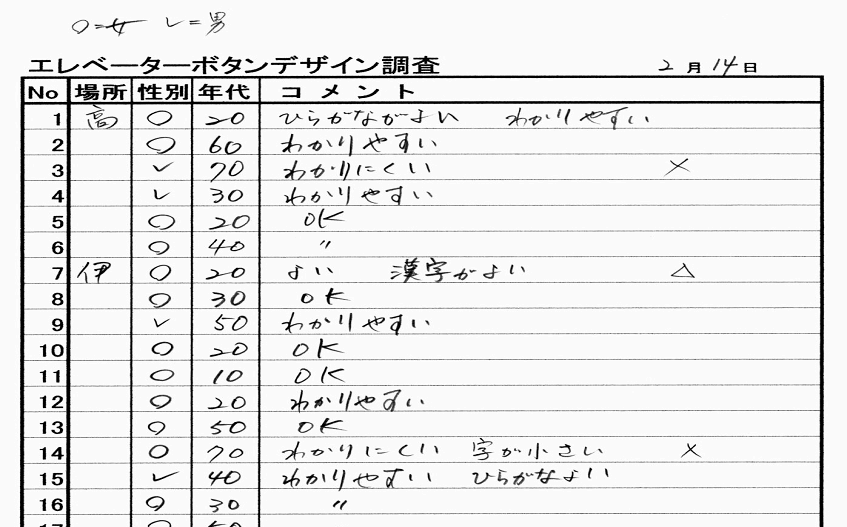 ○=女 レ=男
エレベーターボタンデザイン調査 2月14日
No 場所 性別 年代 コメント
1 高 ○ 20 ひらがながよい わかりやすい
2 ○ 60 わかりやすい
3 レ 70 わかりにくい ×
4 レ 30 わかりやすい
5 ○ 20 OK
6 ○ 40 〃
7 伊 ○ 20 よい 漢字がよい △
8 ○ 30 OK
9 レ 50 わかりやすい
10 ○ 20 OK
11 ○ 10 OK
12 ○ 20 わかりやすい
13 ○ 50 OK
14 ○ 70 わかりにくい 字が小さい ×
15 レ 40 わかりやすい ひらがなよい
16 ○ 30 〃